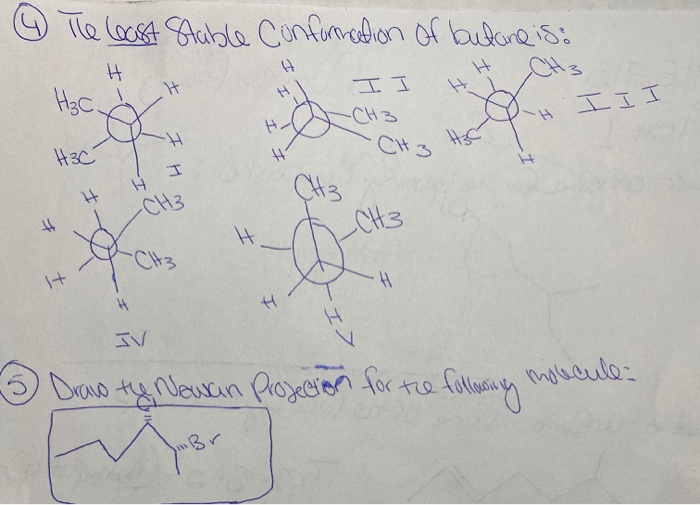 ④ The Least Stable Conformation of butane is:
H H
H3C
H
H3C
H
I
H
H II
H CH3
H CH3
H CH3
H
H III
H3C
H
H
CH3
H
H CH3
H
IV
CH3
CH3
H
H
H
H
V
⑤ Draw the Newman Projection for the following molecule:
Cl
Br